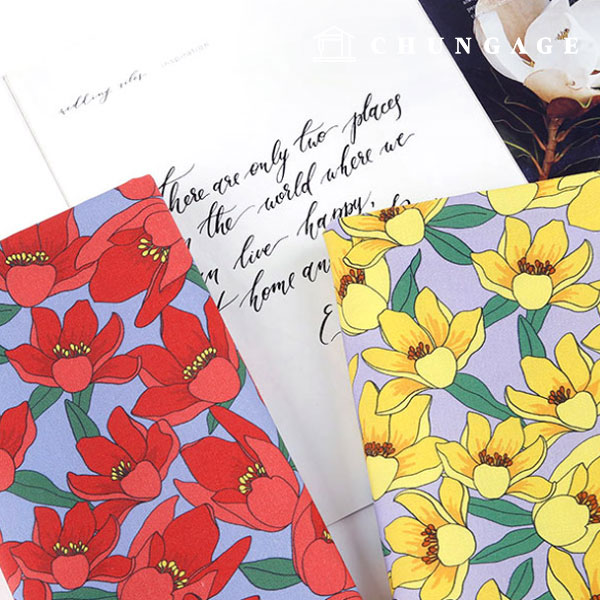 CHUNGAGE
wedding vibes INSPIRATION
there are only two places
the world where we
live happy,
home an
E